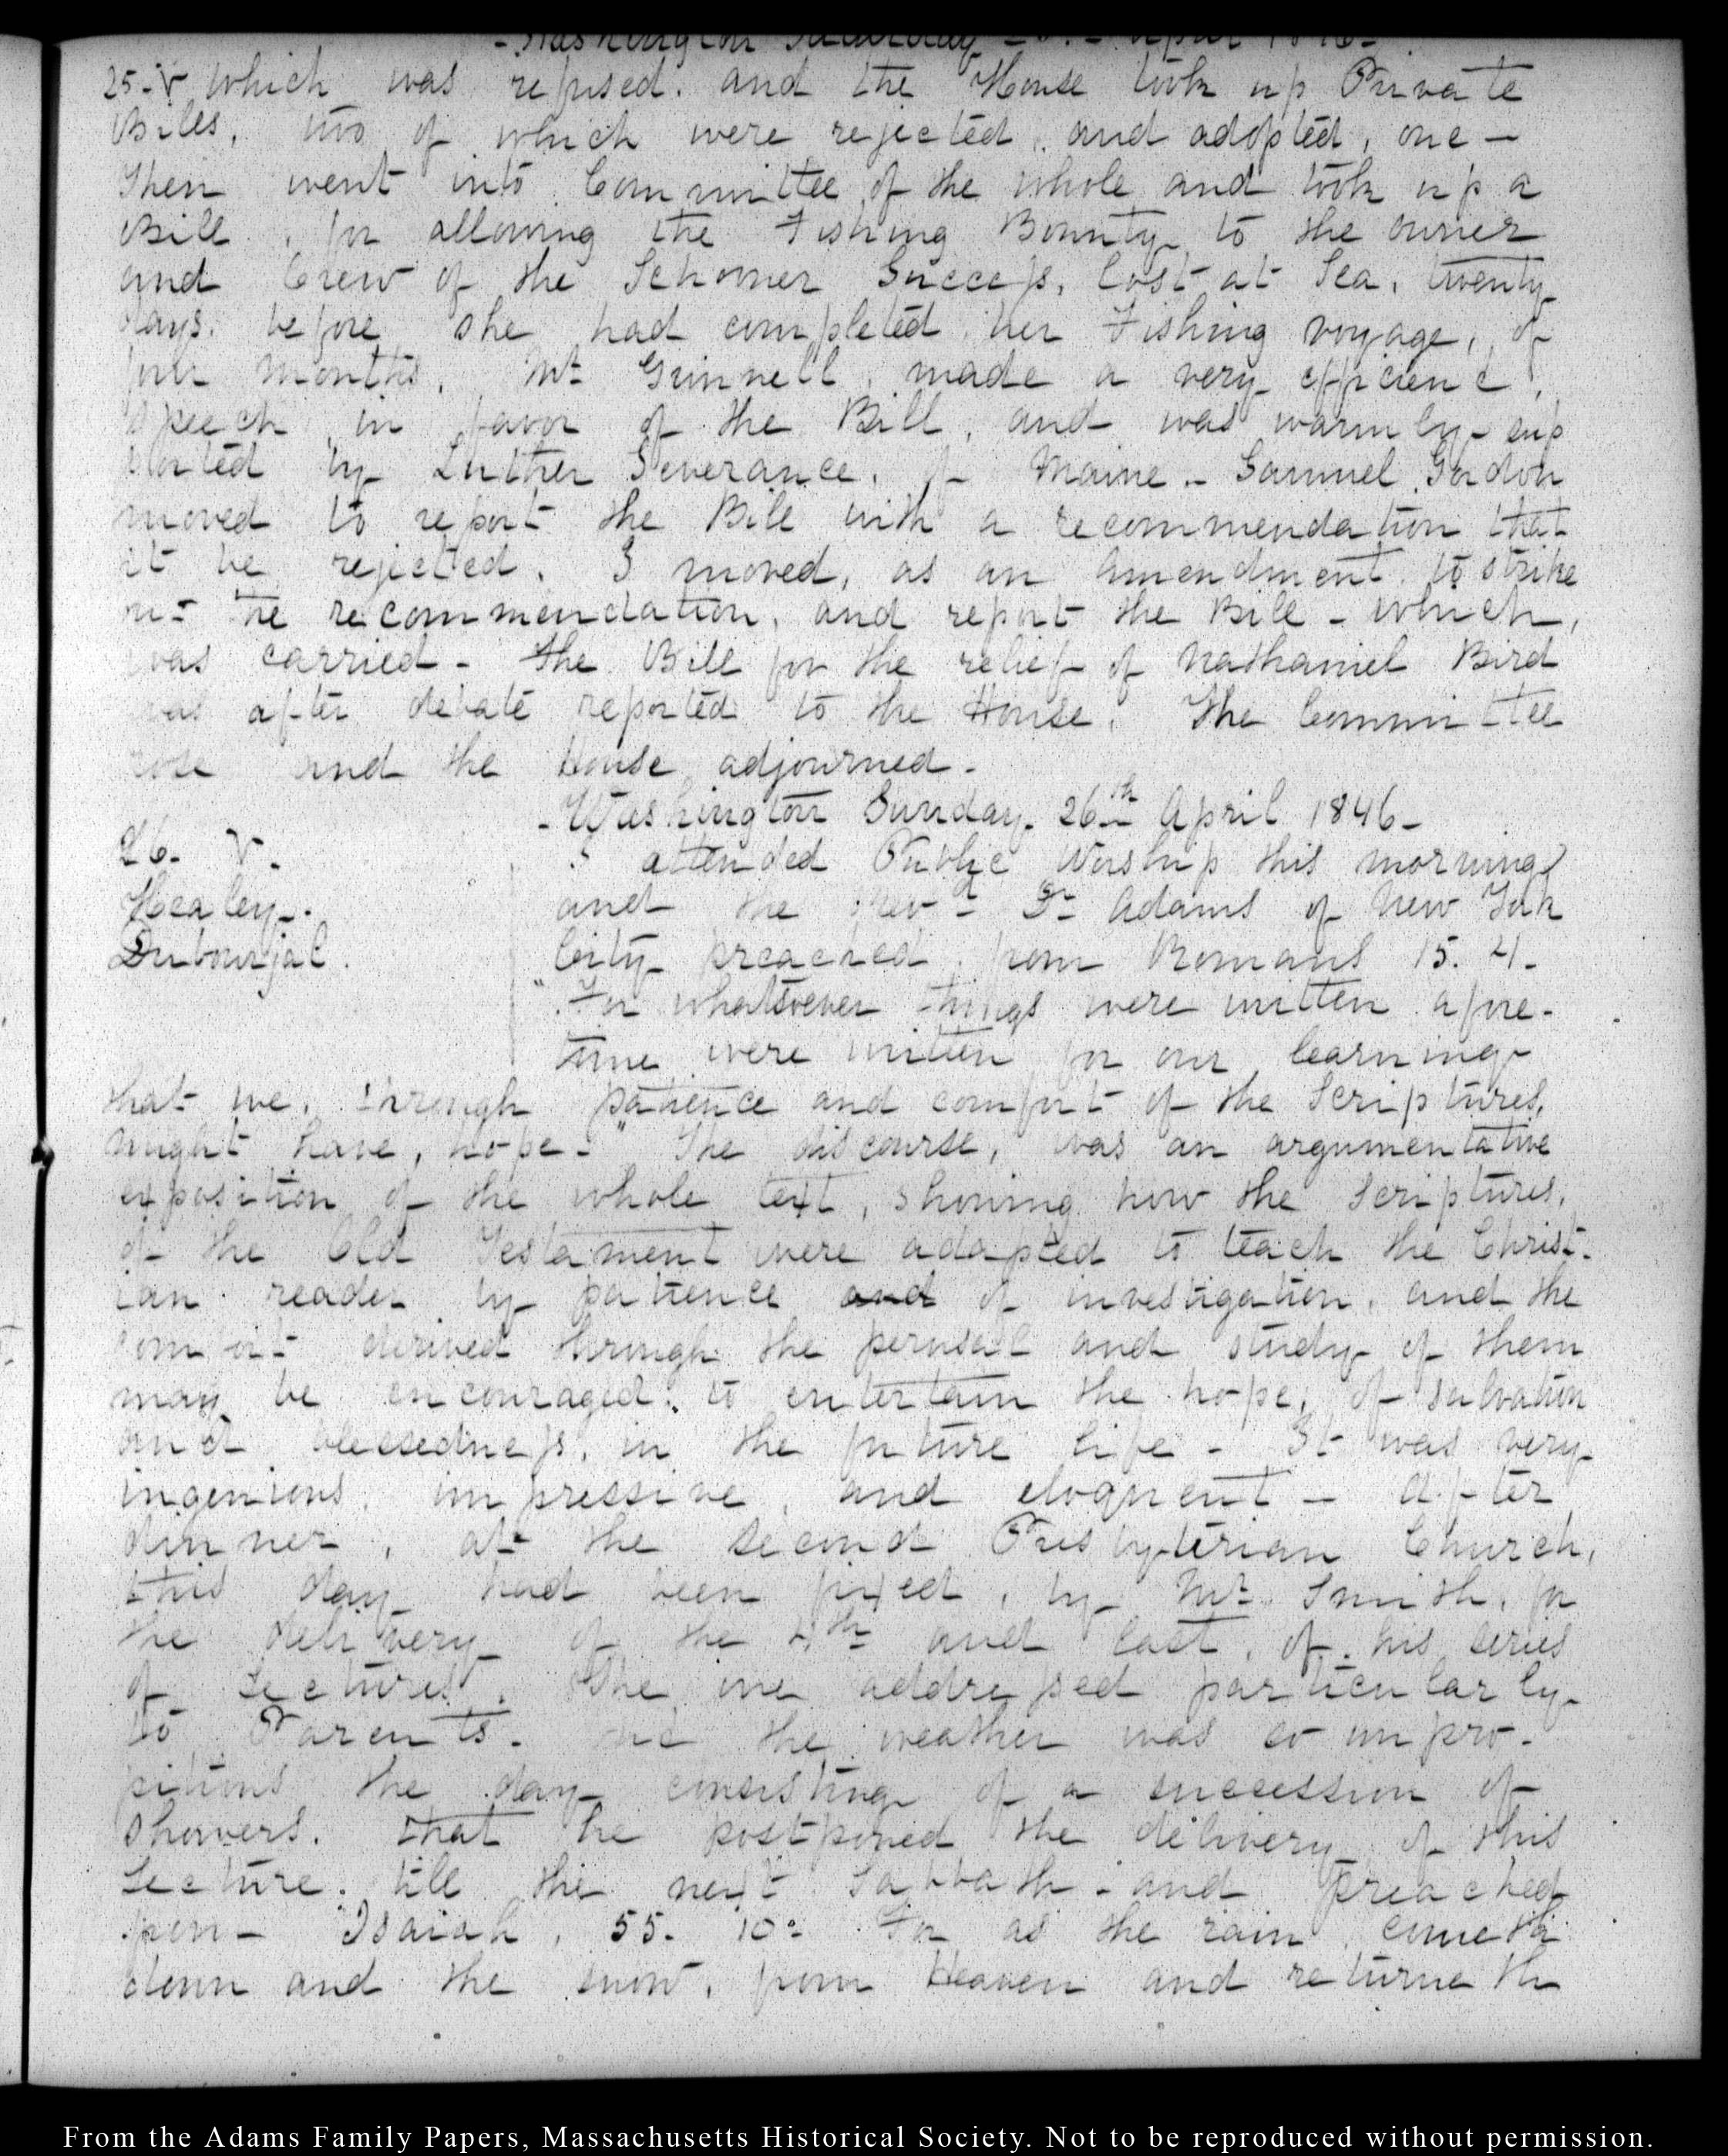 - Washington Saturday 25. April 1846 -
25. V which was refused. and the House took up Private
Bills, two of which were rejected, and adopted, one —
Then went into Committee of the whole and took up a
Bill, for allowing the Fishing Bounty to the owner
and Crew of the Schooner Success, lost at Sea, twenty
days. before she had completed her Fishing voyage, of
four months. Mr Grinnell, made a very efficient,
speech in favor of the Bill, and was warmly sup
ported by Luther Severance, of Maine - Samuel Gordon
moved to report the Bill with a recommendation that
it be rejected. I moved, as an amendment to strike
out the recommendation, and report the Bill - which,
was carried - The Bill for the relief of Nathaniel Bird
was after debate reported to the House. The Committee
rose and the House adjourned -
- Washington Sunday. 26th April 1846 -
26. V.
Healey.
Dubourjal.
I attended Public Worship this morning
and the Revd Dr Adams of New York
City preached from Romans 15. 4.
"For whatsoever things were written afore-
time were written for our learning
that we, through patience and comfort of the Scriptures,
might have, hope -" The discourse, was an argumentative
exposition of the whole text, showing how the Scriptures,
of the Old Testament were adapted to teach the Christ-
ian reader by patience and of investigation, and the
comfort derived through the perusal and study of them
may be encouraged: to entertain the hope, of salvation
and blessedness, in the future life - It was very
ingenious, impressive, and eloquent - After
dinner, at the second Presbyterian Church,
this day had been fixed, by Mr Smith, for
the delivery of the 4th and last, of his series
of Lectures. The one addressed particularly
to Parents. the weather was so unpro-
pitious the day consisting of a succession of
showers. that he postponed the delivery of this
Lecture. till the next Sabbath - and preached
from - Isaiah, 55. 10: For as the rain, cometh
down and the snow, from Heaven and returneth
From the Adams Family Papers, Massachusetts Historical Society. Not to be reproduced without permission.